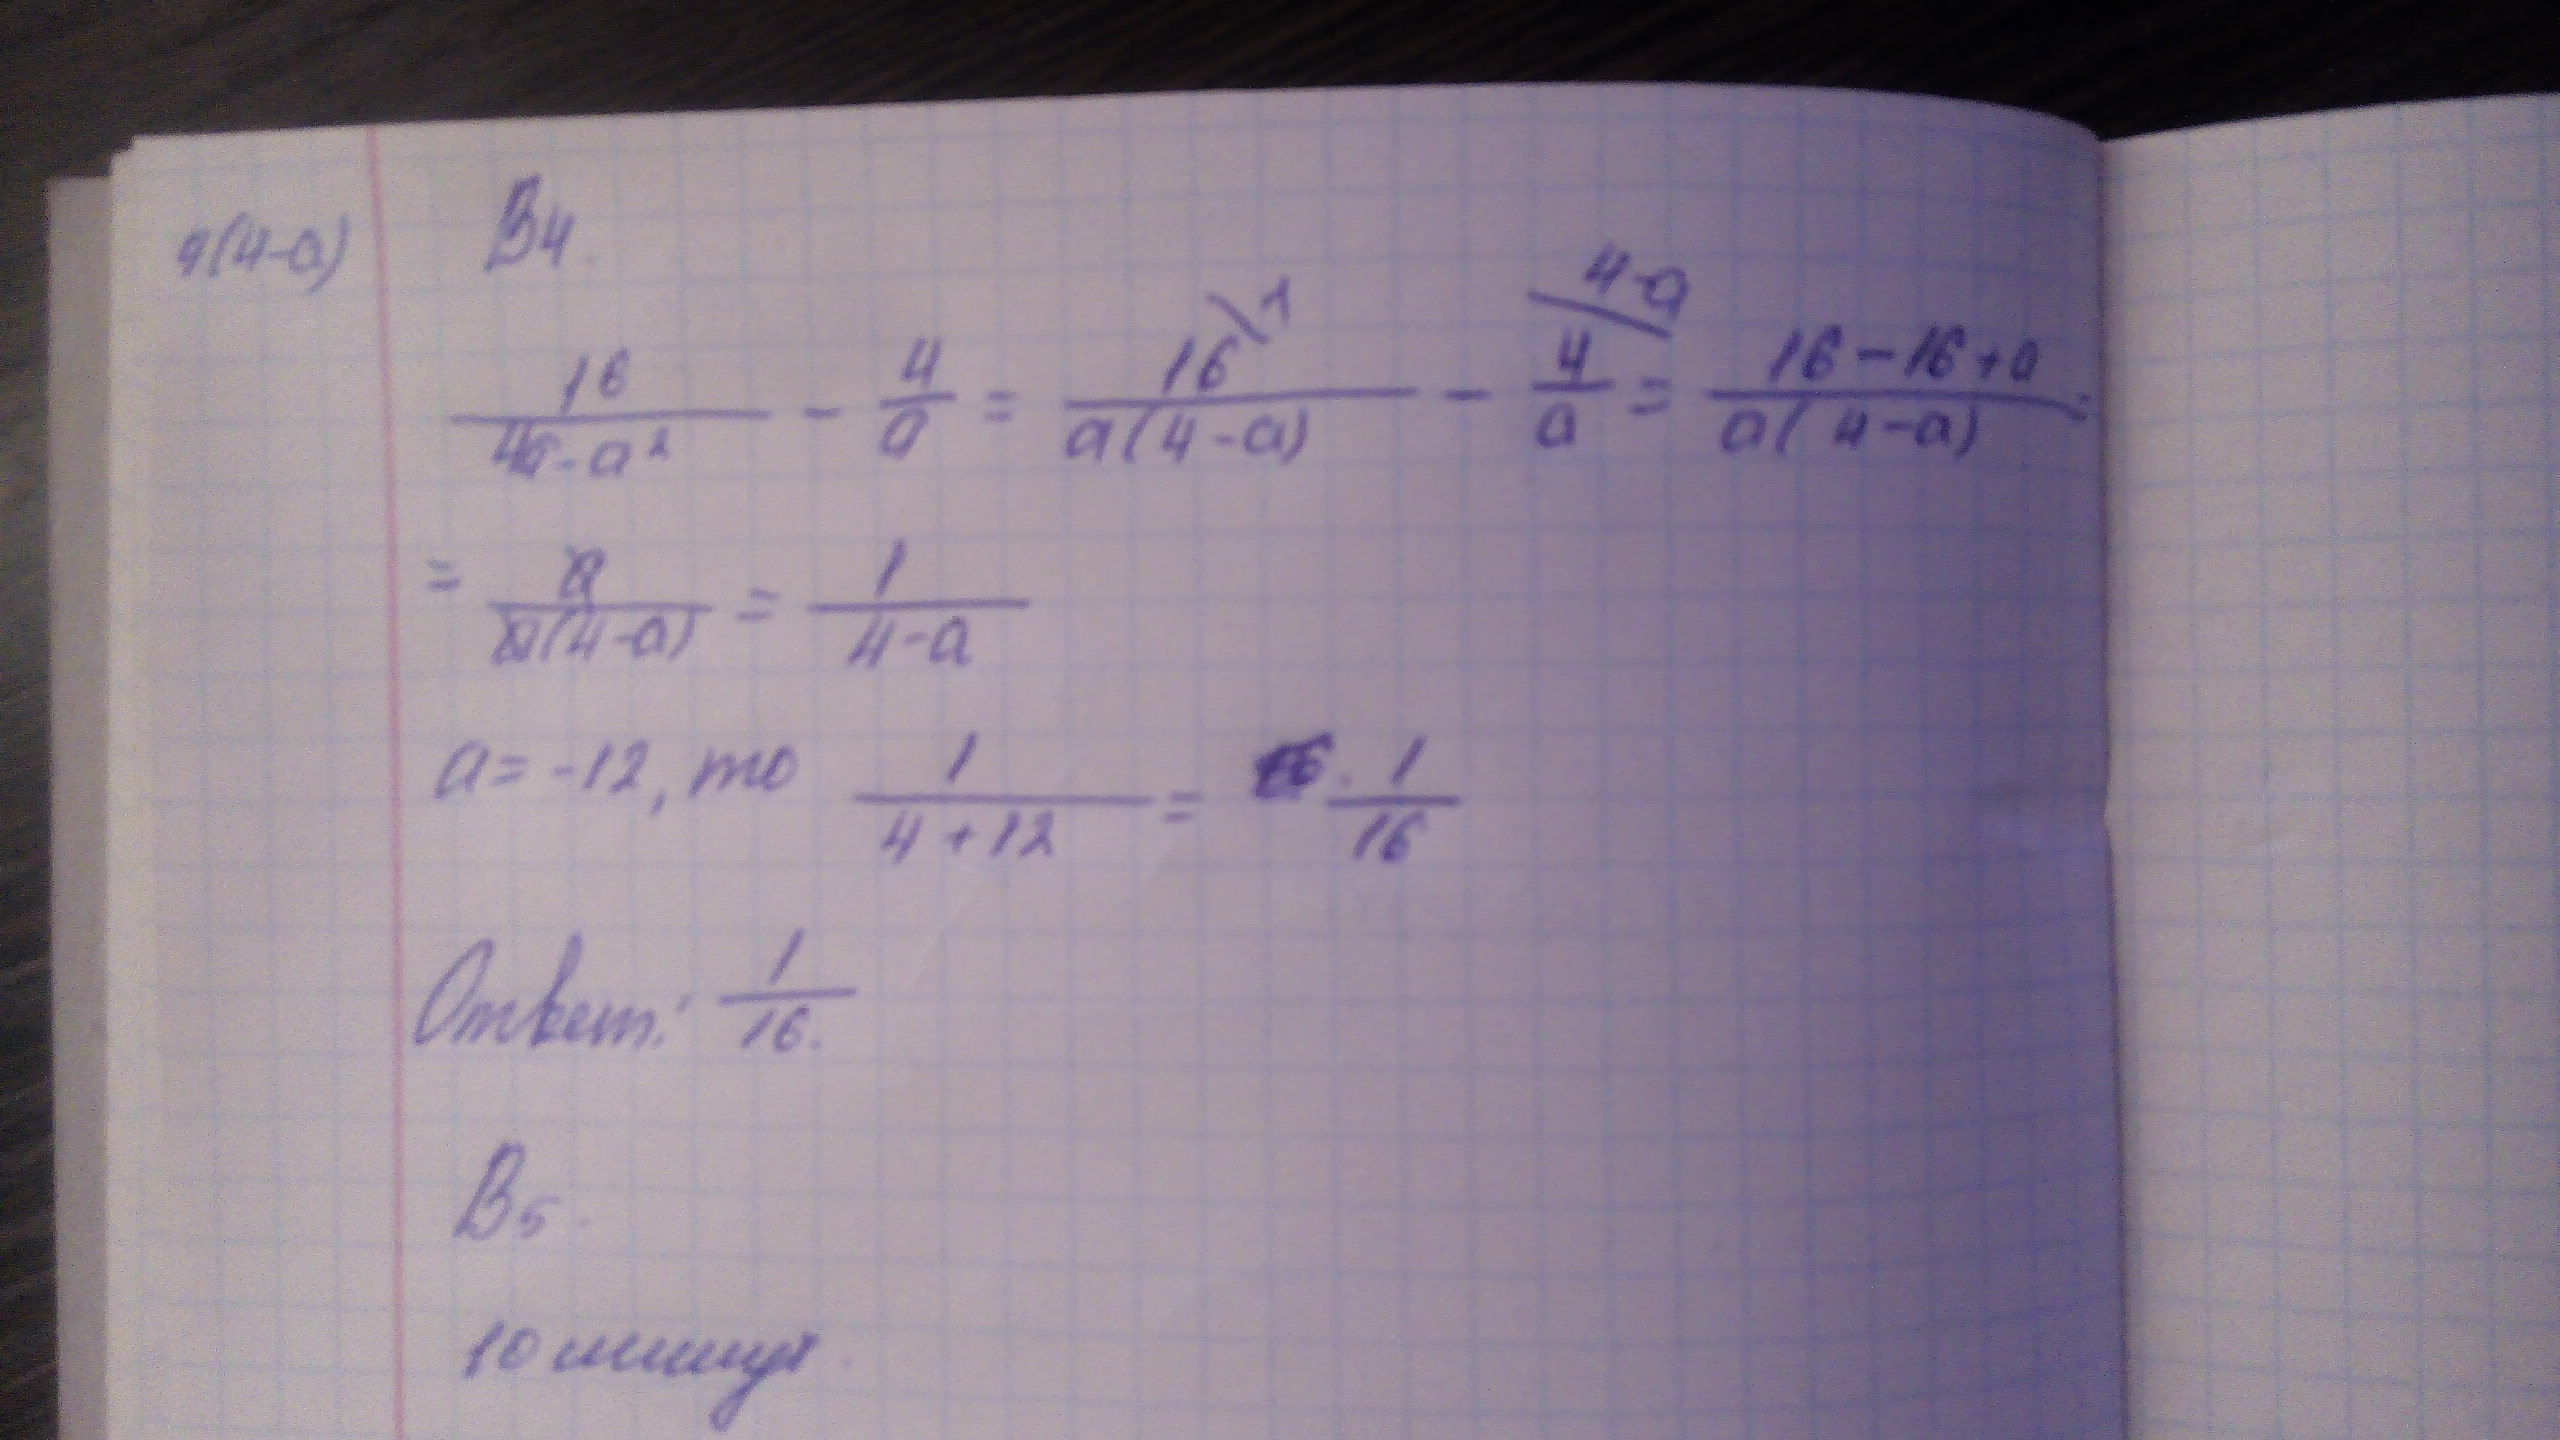 a(4-a)
B4.
16/(4a-a²) - 4/a = 16\1/(a(4-a)) - 4/a \4-a = (16-16+a)/(a(4-a)) =
= a/(a(4-a)) = 1/(4-a)
a = -12, то 1/(4+12) = 1/16
Ответ: 1/16.
B5.
10 минут.